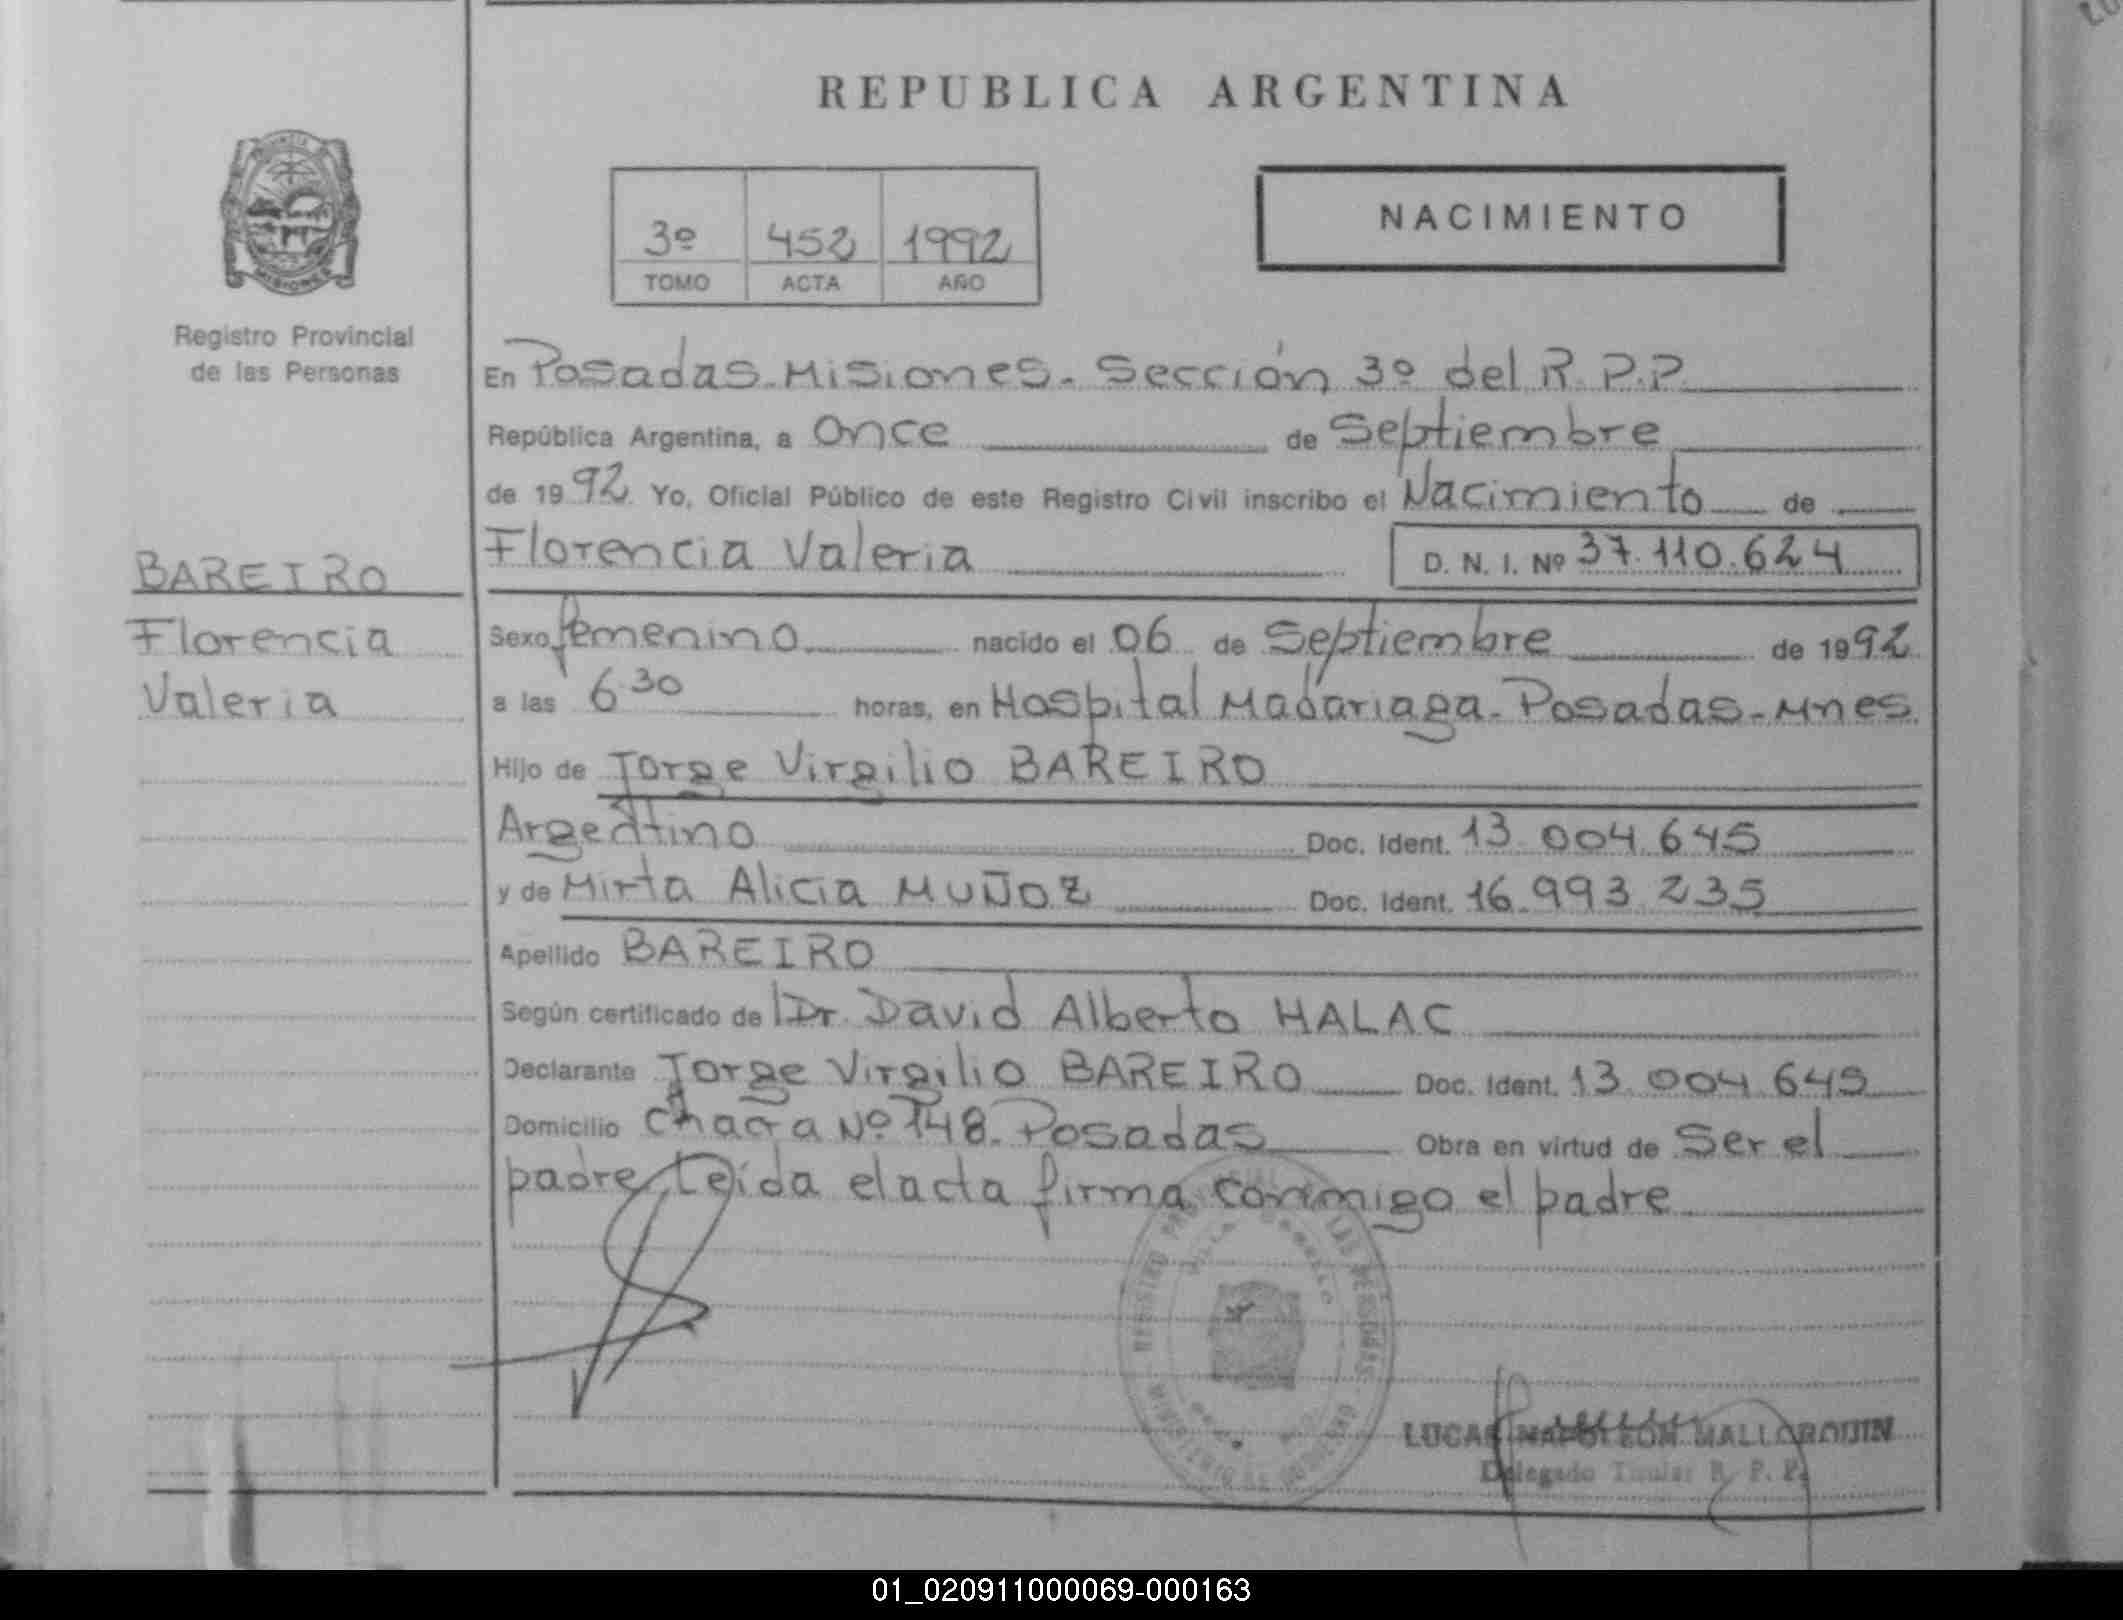 REPUBLICA ARGENTINA
3º 452 1992
TOMO ACTA AÑO
NACIMIENTO
Registro Provincial
de las Personas
BAREIRO
Florencia
Valeria
En Posadas-Misiones-Sección 3º del R.P.P.
República Argentina, a Once de Septiembre
de 1992 Yo, Oficial Público de este Registro Civil inscribo el Nacimiento de
Florencia Valeria D. N. I. Nº 37.110.624
Sexo femenino nacido el 06 de Septiembre de 1992
a las 6 30 horas, en Hospital Madariaga-Posadas-Mnes.
Hijo de Jorge Virgilio BAREIRO
Argentino Doc. Ident. 13.004.645
y de Mirta Alicia MUÑOZ Doc. Ident. 16.993.235
Apellido BAREIRO
Según certificado de Dr. David Alberto HALAC
Declarante Jorge Virgilio BAREIRO Doc. Ident. 13.004.645
Domicilio Chacra Nº 148-Posadas Obra en virtud de Ser el
padre Leída el acta firma conmigo el padre
REGISTRO PROVINCIAL DE LAS PERSONAS
MINISTERIO DE GOBIERNO
LUCAS NAPOLEON MALLORQUIN
Delegado Titular R. P. P.
01_020911000069-000163